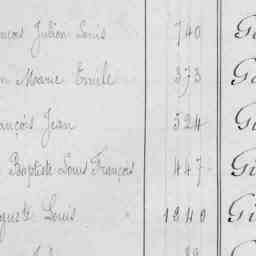 nçois Julien Louis 740 G
n Marie Emile 373 G
ançois Jean 524 G
Baptiste Louis François 447 Gi
guste Louis 1840 Gi